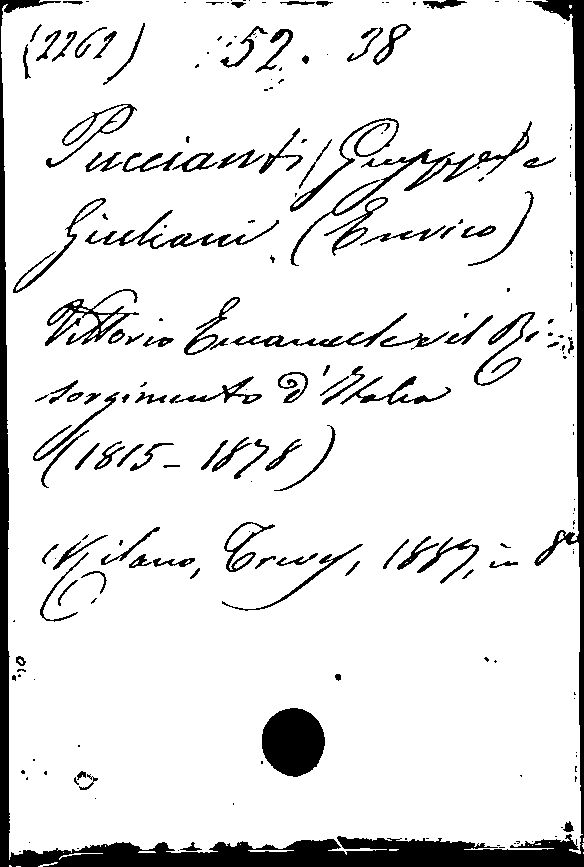 (2262) 52. 38
Puccianti (Giuseppe) e
Giuliani (Enrico)
Vittorio Emanuele e il Ri-
sorgimento d'Italia
(1815-1878)
Milano, Treves, 1887, in 8º